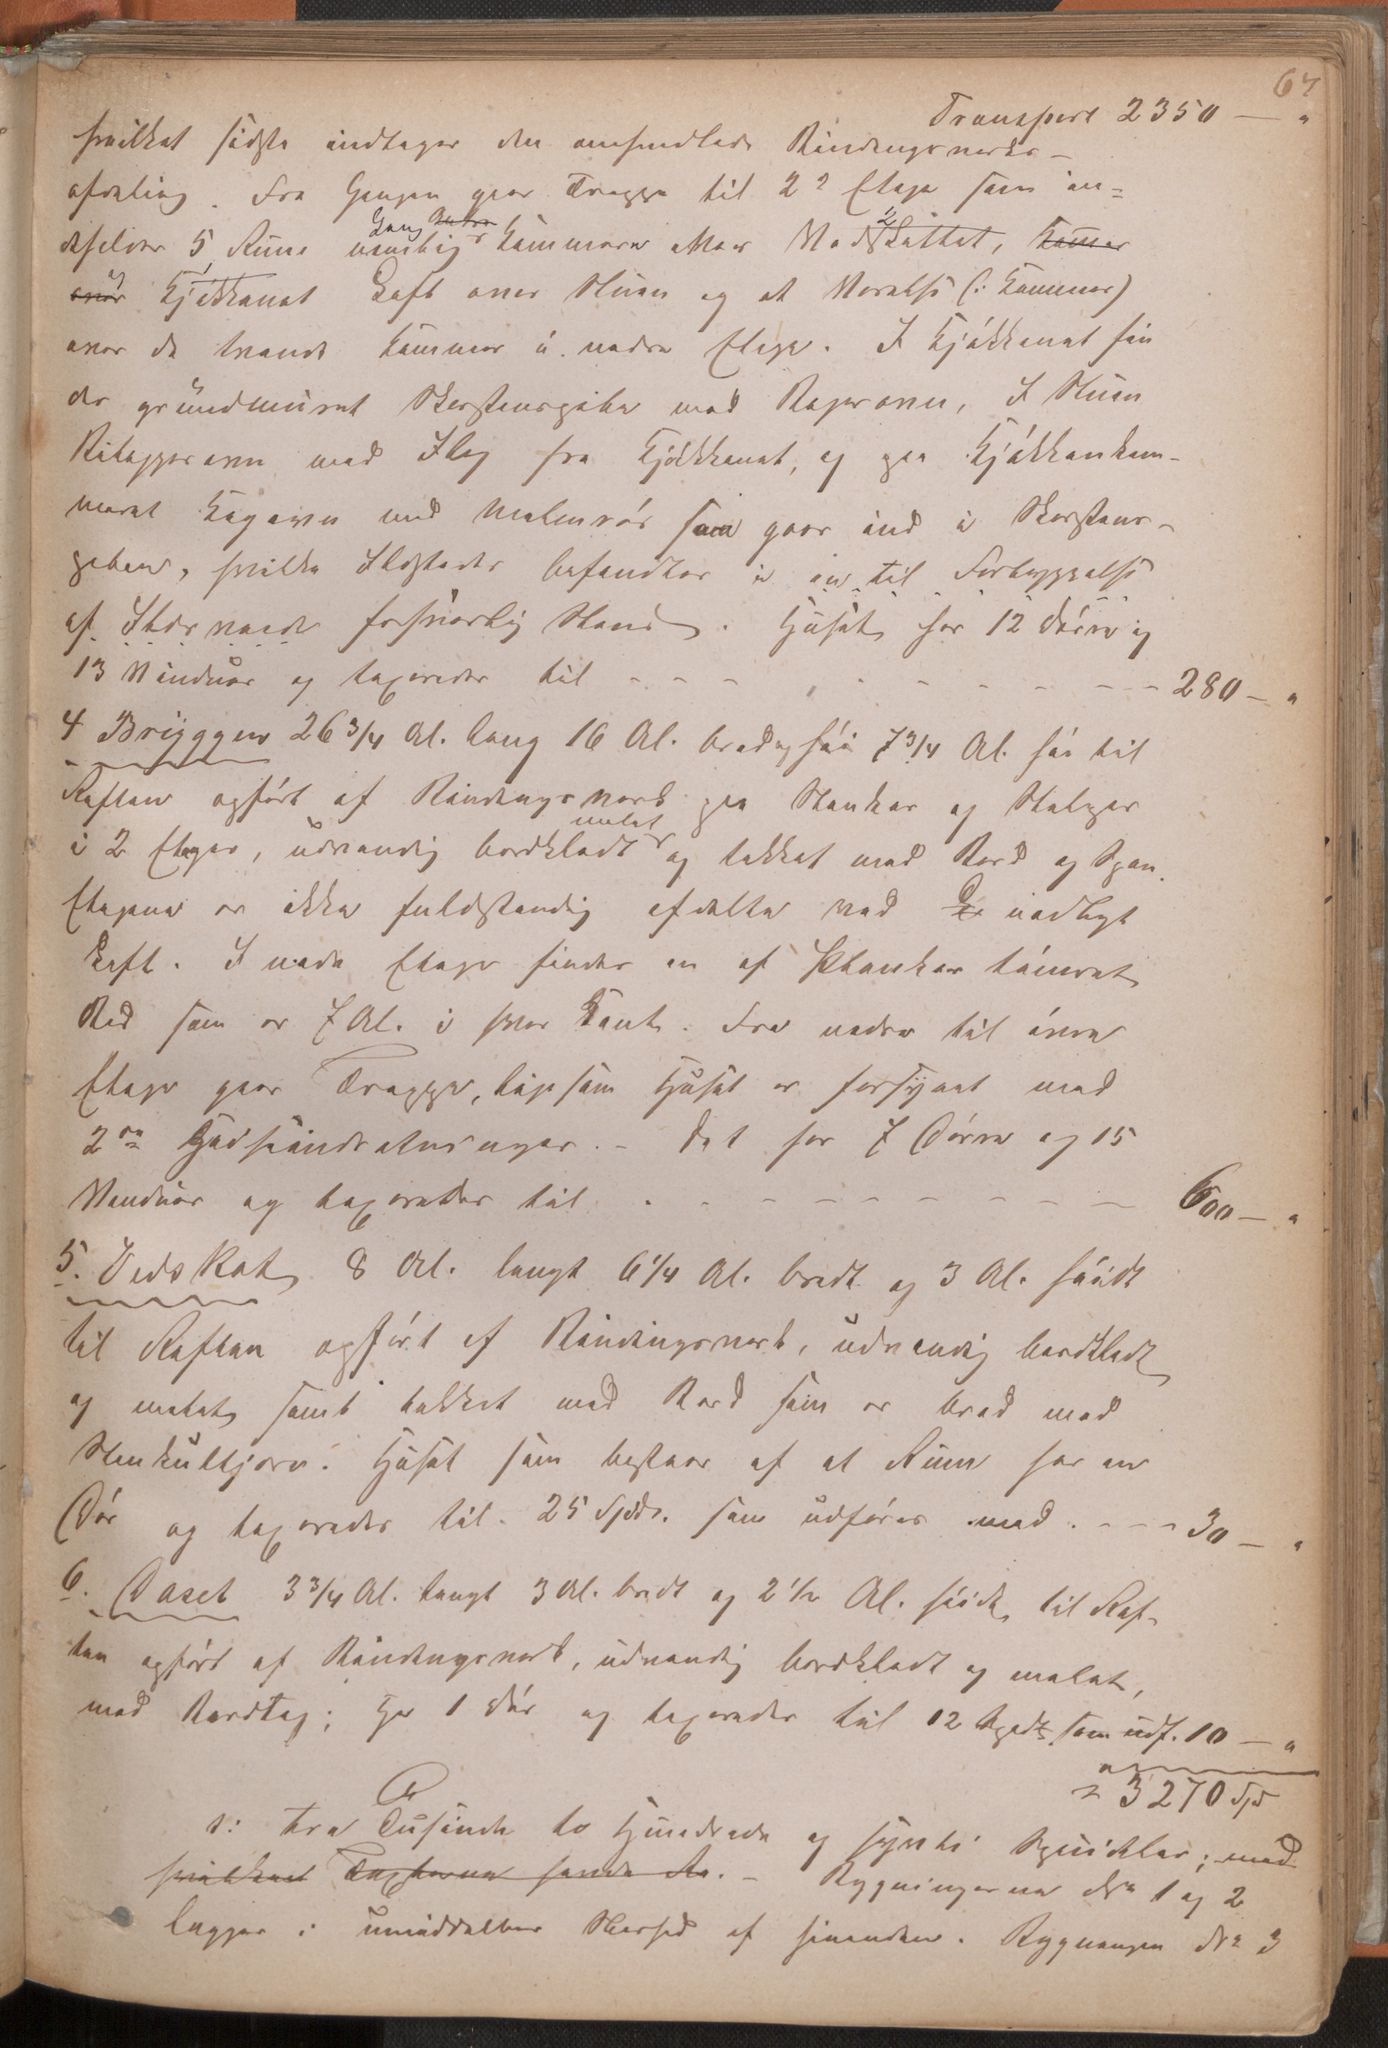 67
Transport 2350 — "
hvilket sidste indtager den omhandlede Bindingsverks-
afdeling. Fra Gangen gaar Trappe til 2den Etage som in-
deholder 5 Rum nemlig Gang Kammere over Madskabet,
Kjøkkenet Loft over Stuen og et Værelse (: Kammer)
over de tvende Kammer i nedre Etage. I Kjøkkenet fin
des grundmuret Skorstenspibe med Bagerovn, I Stuen
Bilæggerovn med Ilæg fra Kjøkkenet, og paa Kjøkkenkam-
meret Kagovn med Malmrør som gaar ind i Skorstens-
piben, hvilke Ildsteder befandtes i en til Forebyggelse
af Ildsvaade forsvarlig Stand. Huset har 12 Døre og
13 Vinduer og taxeredes til - - - - - - - - - 280 — "
4 Bryggen 26 3/4 Al. lang 16 Al. bred og høi 7 3/4 Al. høi til
Raften opført af Bindingsverk paa Stænker og Stolper
i 2 Etager, udvendig bordklædt malet og tækket med Bord og Spon.
Etagerne er ikke fuldstændig afdelte ved indlagt
Loft. I nedre Etage findes en af Planker tømret
Bod som er 7 Al. i hver Kant. Fra nedre til øvre
Etage gaar Trappe, ligesom Huset er forsynet med
2de Godshindretninger. - Det har 7 Døre og 15
Vinduer og taxeredes til - - - - - - - - 600 — "
5. Vedskot 8 Al. langt 6 1/4 Al. bredt og 3 Al. høidt
til Raften opført af Bindingsverk, udvendig bordklædt
og malet samt tækket med Bord som er bred med
Stenkultjære. Huset som bestaar af et Rum har en
Dør og taxeredes til 25 Spdr. som udføres med - - - 30 — "
6. Doset 3 3/4 Al. langt 3 Al. bredt og 2 1/2 Al. høidt til Raf-
ten opført af Bindingsverk, udvendig bordklædt og malet,
med Bordtag; har 1 Dør og taxeredes til 12 Spdr som udf. 10 — "
= 3270 Spd
s: tre Tusinde to Hundrede og sytti Specidler; med
hvilket Taxterne Rygningerne No 1 og 2
ligger i umiddelbar Nærhed af hinanden. Bygningen No 3